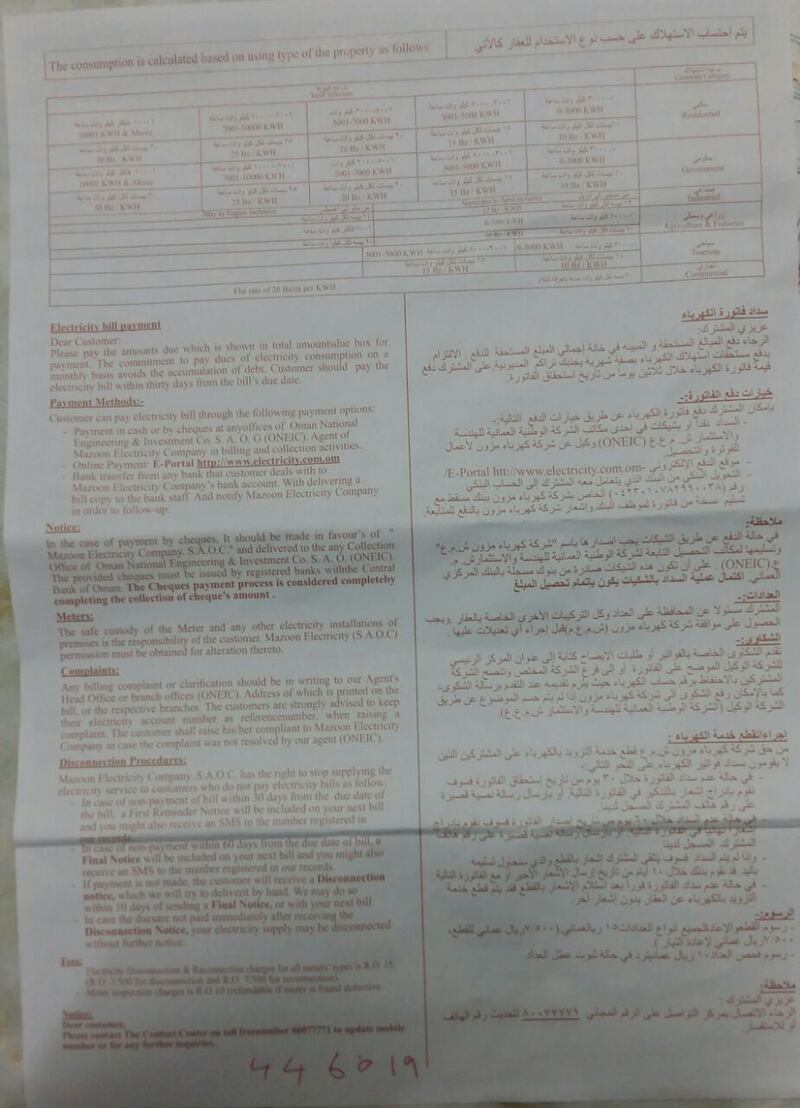 The consumption is calculated based on using type of the property as follows
يتم احتساب الاستهلاك على حسب نوع الاستخدام للعقار كالآتي
Customer Category
10001 KWH & Above
7001-10000 KWH
5001-7000 KWH
3001-5000 KWH
0-3000 KWH
Residential
30 Bz / KWH
25 Bz / KWH
20 Bz / KWH
15 Bz / KWH
10 Bz / KWH
10001 KWH & Above
7001-10000 KWH
5001-7000 KWH
3001-5000 KWH
0-3000 KWH
Government
30 Bz / KWH
25 Bz / KWH
20 Bz / KWH
15 Bz / KWH
10 Bz / KWH
May to August inclusive
September to April inclusive
Industrial
12 Bz / KWH
0-7000 KWH
10 Bz / KWH
Agriculture & Fisheries
3001-5000 KWH
0-3000 KWH
Tourists
15 Bz / KWH
10 Bz / KWH
Flat rate of 20 Baiza per KWH
Commercial
Electricity bill payment
Dear Customer:
Please pay the amounts due which is shown in total amountsdue box for
payment. The commitment to pay dues of electricity consumption on a
monthly basis avoids the accumulation of debt. Customer should pay the
electricity bill within thirty days from the bill's due date.
Payment Methods:-
Customer can pay electricity bill through the following payment options:
- Payment in cash or by cheques at anyoffices of Oman National
Engineering & Investment Co. S. A. O. G (ONEIC). Agent of
Mazoon Electricity Company in billing and collection activities.
- Online Payment: E-Portal http://www.electricity.com.om
- Bank transfer from any bank that customer deals with to
Mazoon Electricity Company's bank account. With delivering a
bill copy to the bank staff. And notify Mazoon Electricity Company
in order to follow-up.
Notice:
In the case of payment by cheques. It should be made in favour's of "
Mazoon Electricity Company. S.A.O.C." and delivered to the any Collection
Office of Oman National Engineering & Investment Co. S. A. O. (ONEIC).
The provided cheques must be issued by registered banks withthe Central
Bank of Oman. The Cheques payment process is considered completeby
completing the collection of cheque's amount .
Meters:
The safe custody of the Meter and any other electricity installations of
premises is the responsibility of the customer. Mazoon Electricity (S.A.O.C)
permission must be obtained for alteration thereto.
Complaints:
Any billing complaint or clarification should be in writing to our Agent's
Head Office or branch offices (ONEIC). Address of which is printed on the
bill, or the respective branches. The customers are strongly advised to keep
their electricity account number as referencenumber, when raising a
complaint. The customer shall raise his/her compliant to Mazoon Electricity
Company in case the complaint was not resolved by our agent (ONEIC).
Disconnection Procedures:
Mazoon Electricity Company. S.A.O.C. has the right to stop supplying the
electricity service to customers who do not pay electricity bills as follow:
- In case of non-payment of bill within 30 days from the due date of
the bill, a First Reminder Notice will be included on your next bill
and you might also receive an SMS to the number registered in
our records.
- In case of non-payment within 60 days from the due date of bill, a
Final Notice will be included on your next bill and you might also
receive an SMS to the number registered in our records.
- If payment is not made, the customer will receive a Disconnection
notice, which we will try to deliverit by hand. We may do so
within 10 days of sending a Final Notice, or with your next bill.
- In case the duesare not paid immediately after receiving the
Disconnection Notice, your electricity supply may be disconnected
without further notice.
Fees:
- Electricity Disconnection & Reconnection charges for all meters' types is R.O. 15
(R.O. 7.500 for disconnection and R.O. 7.500 for reconnection).
- Meter inspection charges is R.O 10 (refundable if meter is found defective.
Notice:
Dear customer,
Please contact The Contact Center on toll freenumber 80077771 to update mobile
number or for any further inquiries.
سداد فاتورة الكهرباء
عزيزي المشترك:
الرجاء دفع المبالغ المستحقة و المبينه في خانة إجمالي المبلغ المستحقة للدفع. الالتزام
بدفع مستحقات استهلاك الكهرباء بصفة شهرية يجنبك تراكم المديونية. على المشترك دفع
قيمة فاتورة الكهرباء خلال ثلاثين يوماً من تاريخ استحقاق الفاتورة.
خيارات دفع الفاتورة:-
بإمكان المشترك دفع فاتورة الكهرباء عن طريق خيارات الدفع التالية:-
- السداد نقداً أو بشيكات في إحدى مكاتب الشركة الوطنية العمانية للهندسة
والاستثمار ش.م.ع.ع (ONEIC). وكيل عن شركة كهرباء مزون لأعمال
الفوترة والتحصيل.
- موقع الدفع الإلكتروني -E-Portal htt://www.electricity.com.om/
- التحويل البنكي من البنك الذي يتعامل معه المشترك إلى الحساب البنكي
رقم (٠٤٢٣٠١٠٧٨٢٩٩٠٠٣٨) الخاص بشركة كهرباء مزون ببنك مسقط مع
تسليم نسخة من فاتورة لموظف البنك. وإشعار شركة كهرباء مزون بالدفع للمتابعة.
ملاحظة:
في حالة الدفع عن طريق الشيكات يجب إصدارها باسم "شركة كهرباء مزون ش.م.ع"
وتسليمها لمكاتب التحصيل التابعة للشركة الوطنية العمانية للهندسة والاستثمار ش. م.
ع (ONEIC). على أن تكون هذه الشيكات صادرة من بنوك مسجلة بالبنك المركزي
العماني. اكتمال عملية السداد بالشيكات يكون بإتمام تحصيل المبلغ
العدادات:-
المشترك مسئولا عن المحافظة على العداد وكل التركيبات الأخرى الخاصة بالعقار. ويجب
الحصول على موافقة شركة كهرباء مزون (ش.م.ع.م) قبل إجراء أي تعديلات عليها .
الشكاوي:-
تقدم الشكاوى الخاصة بالفواتير أو طلبات الإيضاح كتابة إلى عنوان المركز الرئيسي
للشركة الوكيل الموضح على الفاتورة أو الى فرع الشركة المختص وتنصح الشركة
المشتركين بالاحتفاظ برقم حساب الكهرباء حيث يلزم تقديمه عند التقدم برسالة الشكوى،
كما بالإمكان رفع الشكوى الى شركة كهرباء مزون إذا لم يتم حسم الموضوع عن طريق
الشركة الوكيل (الشركة الوطنية العمانية للهندسة والاستثمار ش.م.ع.ع).
إجراء قطع خدمة الكهرباء :
من حق شركة كهرباء مزون ش.م.ع قطع خدمة التزويد بالكهرباء على المشتركين الذين
لا يقومون بسداد فواتير الكهرباء على النحو التالي:-
- في حالة عدم سداد الفاتورة خلال ٣٠ يوم من تاريخ إستحقاق الفاتورة فسوف
نقوم بإدراج إشعار بالتذكير في الفاتورة التالية. أو بإرسال رسالة نصية قصيرة
على رقم هاتف المشترك المسجل لدينا
- في حالة عدم السداد خلال ٦٠ يوم من تاريخ إصدار الفاتورة فسوف نقوم بإدراج
إشعارا نهائيا في الفاتورة التالية. أو بإرسال رسالة نصية قصيرة على رقم هاتف
المشترك المسجل لدينا
- وإذا لم يتم السداد فسوف يتلقى المشترك إشعار بالقطع والذي سنحاول تسليمه
باليد. قد نقوم بذلك خلال ١٠ أيام من تاريخ إرسال الإشعار الأخير أو مع الفاتورة التالية
- في حالة عدم سداد الفاتورة فوراً بعد استلام الإشعار بالقطع فقد يتم قطع خدمة
التزويد بالكهرباء عن العقار بدون إشعار آخر.
الرسوم:-
- رسوم القطع والإعادة لجميع أنواع العدادات ١٥ ريال عماني (٧/٥٠٠ ريال عماني للقطع،
٧/٥٠٠ ريال عماني لإعادة التيار ).
- رسوم فحص العداد ١٠ ريال عماني ترد في حالة ثبوت عطل العداد
ملاحظة:
عزيزي المشترك :
الرجاء الاتصال بمركز التواصل على الرقم المجاني ٨٠٠٧٧٧٧١ لتحديث رقم الهاتف
أو للاستفسار
446019